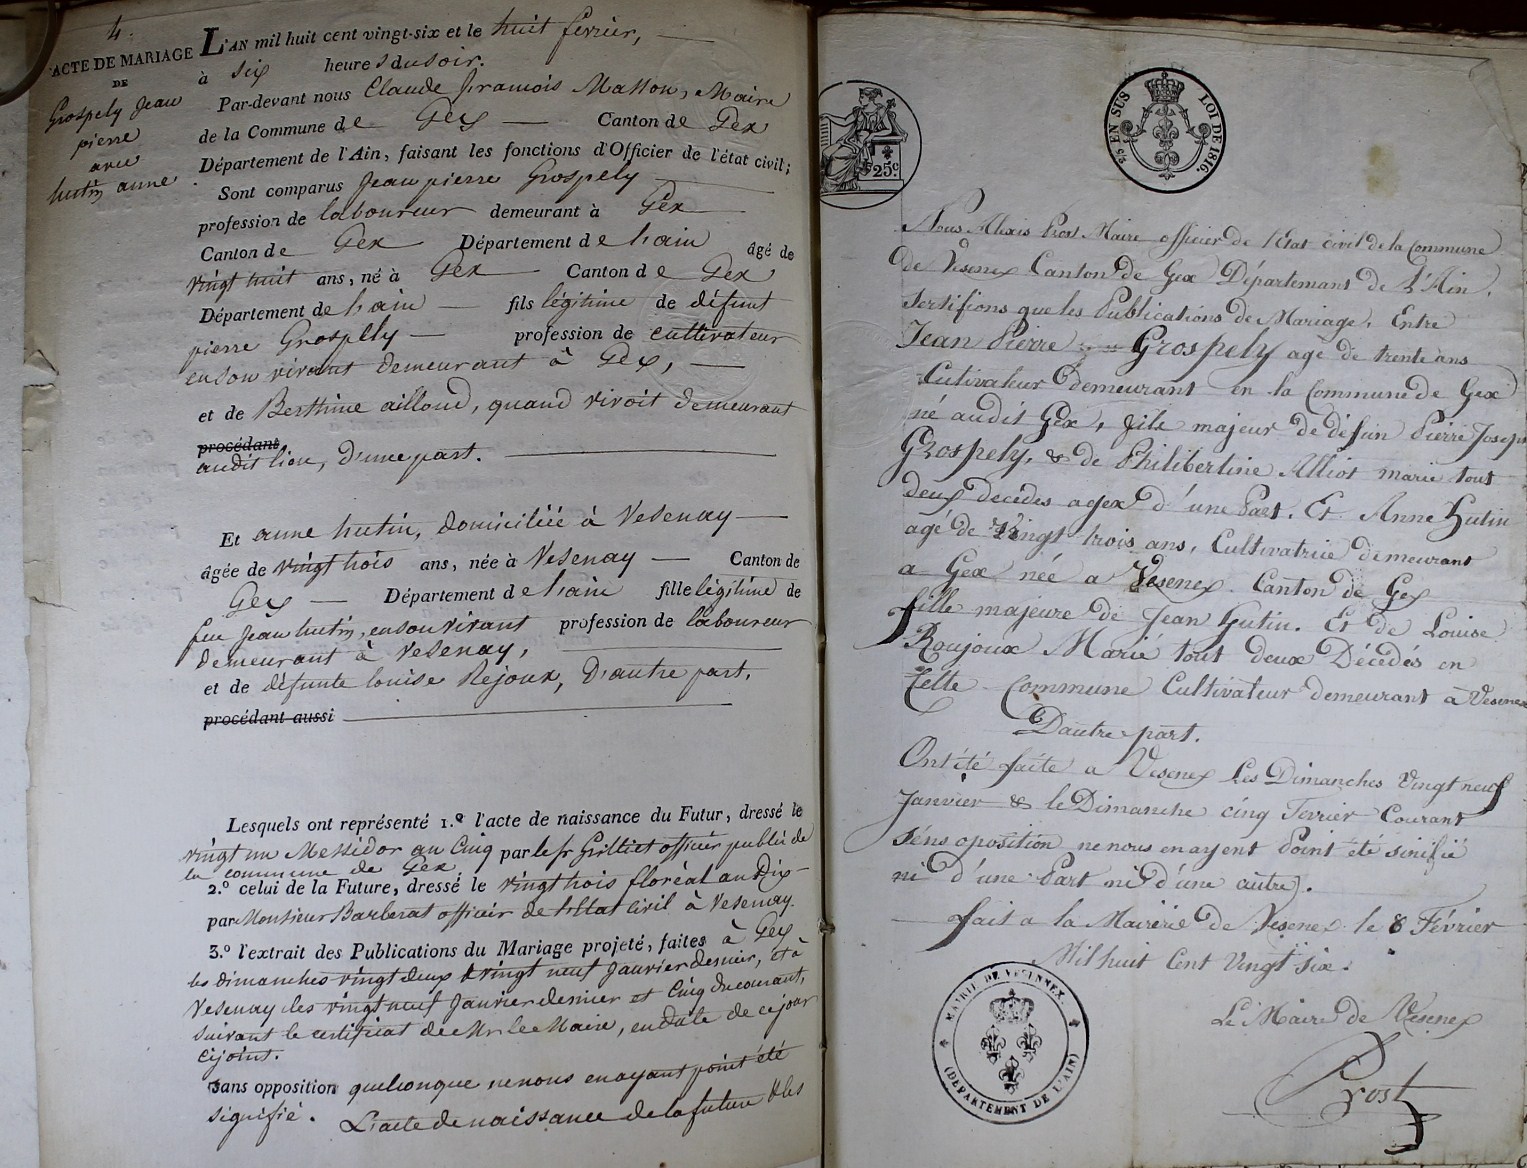 4.
ACTE DE MARIAGE
DE
Grospely Jean
pierre
avec
hutin anne
L'AN mil huit cent vingt-six et le huit fevrier,
à six heures du soir.
Par-devant nous Claude françois Masson, Maire
de la Commune de Gex Canton de Gex
Département de l'Ain, faisant les fonctions d'Officier de l'état civil;
Sont comparus Jean pierre Grospely
profession de laboureur demeurant à Gex
Canton de Gex Département de l'ain âgé de
vingt huit ans, né à Gex Canton de Gex
Département de l'ain fils légitime de défunt
pierre Grospely profession de cultivateur
en son vivant demeurant à Gex,
et de Berthineailloud, quand vivoit demeurant
procédant
audit lieu, d'une part.
Et anne hutin, domiciliée à Vesenay
âgée de vingt trois ans, née à Vesenay Canton de
Gex Département de l'ain fille légitime de
feu Jean hutin, en son vivant profession de laboureur
demeurant à Vesenay,
et de défunte louise Rejoux, D'autre part,
procédant aussi
Lesquels ont représenté 1.º l'acte de naissance du Futur, dressé le
vingt un Messidor an Cinq par le sr officier public de
la commune de Gex
2.º celui de la Future, dressé le vingt trois floréal an Dix
par Monsieur Barberat officier de l'Etat Civil à Vesenay.
3.º l'extrait des Publications du Mariage projeté, faites à Gex
les dimanches vingt deux & vingt neuf Janvier dernier, et à
Vesenay les vingt neuf Janvier dernier et Cinq du courant,
suivant le certificat de Mr le Maire, en date de ce jour
cijoint.
sans opposition quelconque ne nous en ayant point été
signifié. L'acte de naissance de la future & les
25c
25c EN SUS LOI DE 1816.
Nous Alexis Prost Maire officier de l'Etat civil de la Commune
de Vesenex Canton de Gex Départemant de L'Ain.
Sertifions que les Publications de Mariage. Entre
Jean Pierre Grospely agé de trente ans
Cutivateur demeurant en la Commune de Gex
né audit Gex, fils majeur de défun Pierre Joseph
Grospely, & de Philibertine Alliot marié tout
deux décédés a gex d'une Part. Et Anne Hutin
agé de vingt trois ans, Cultivatrice demeurant
a Gex née a Vesenex Canton de Gex
fille majeure de Jean Hutin. Et de Louise
Roujoux Marié tout deux Décédés en
Cette Commune Cultivateur demeurant à Vesenex
D'autre part.
Ont été faite a Vesenex Les Dimanches Vingt neuf
Janvier & le Dimanche cinq Fevrier Courant
sens oposition ne nous en ayent Point été sinifié
ni d'une Part ni d'une autre.
fait a la Mairerie de Vesenex le 8 Février
Mil huit Cent Vingt Six.
Le Maire de Vesenex
Prost
MAIRIE DE VESENNEX.
(DEPARTEMENT DE L'AIN)